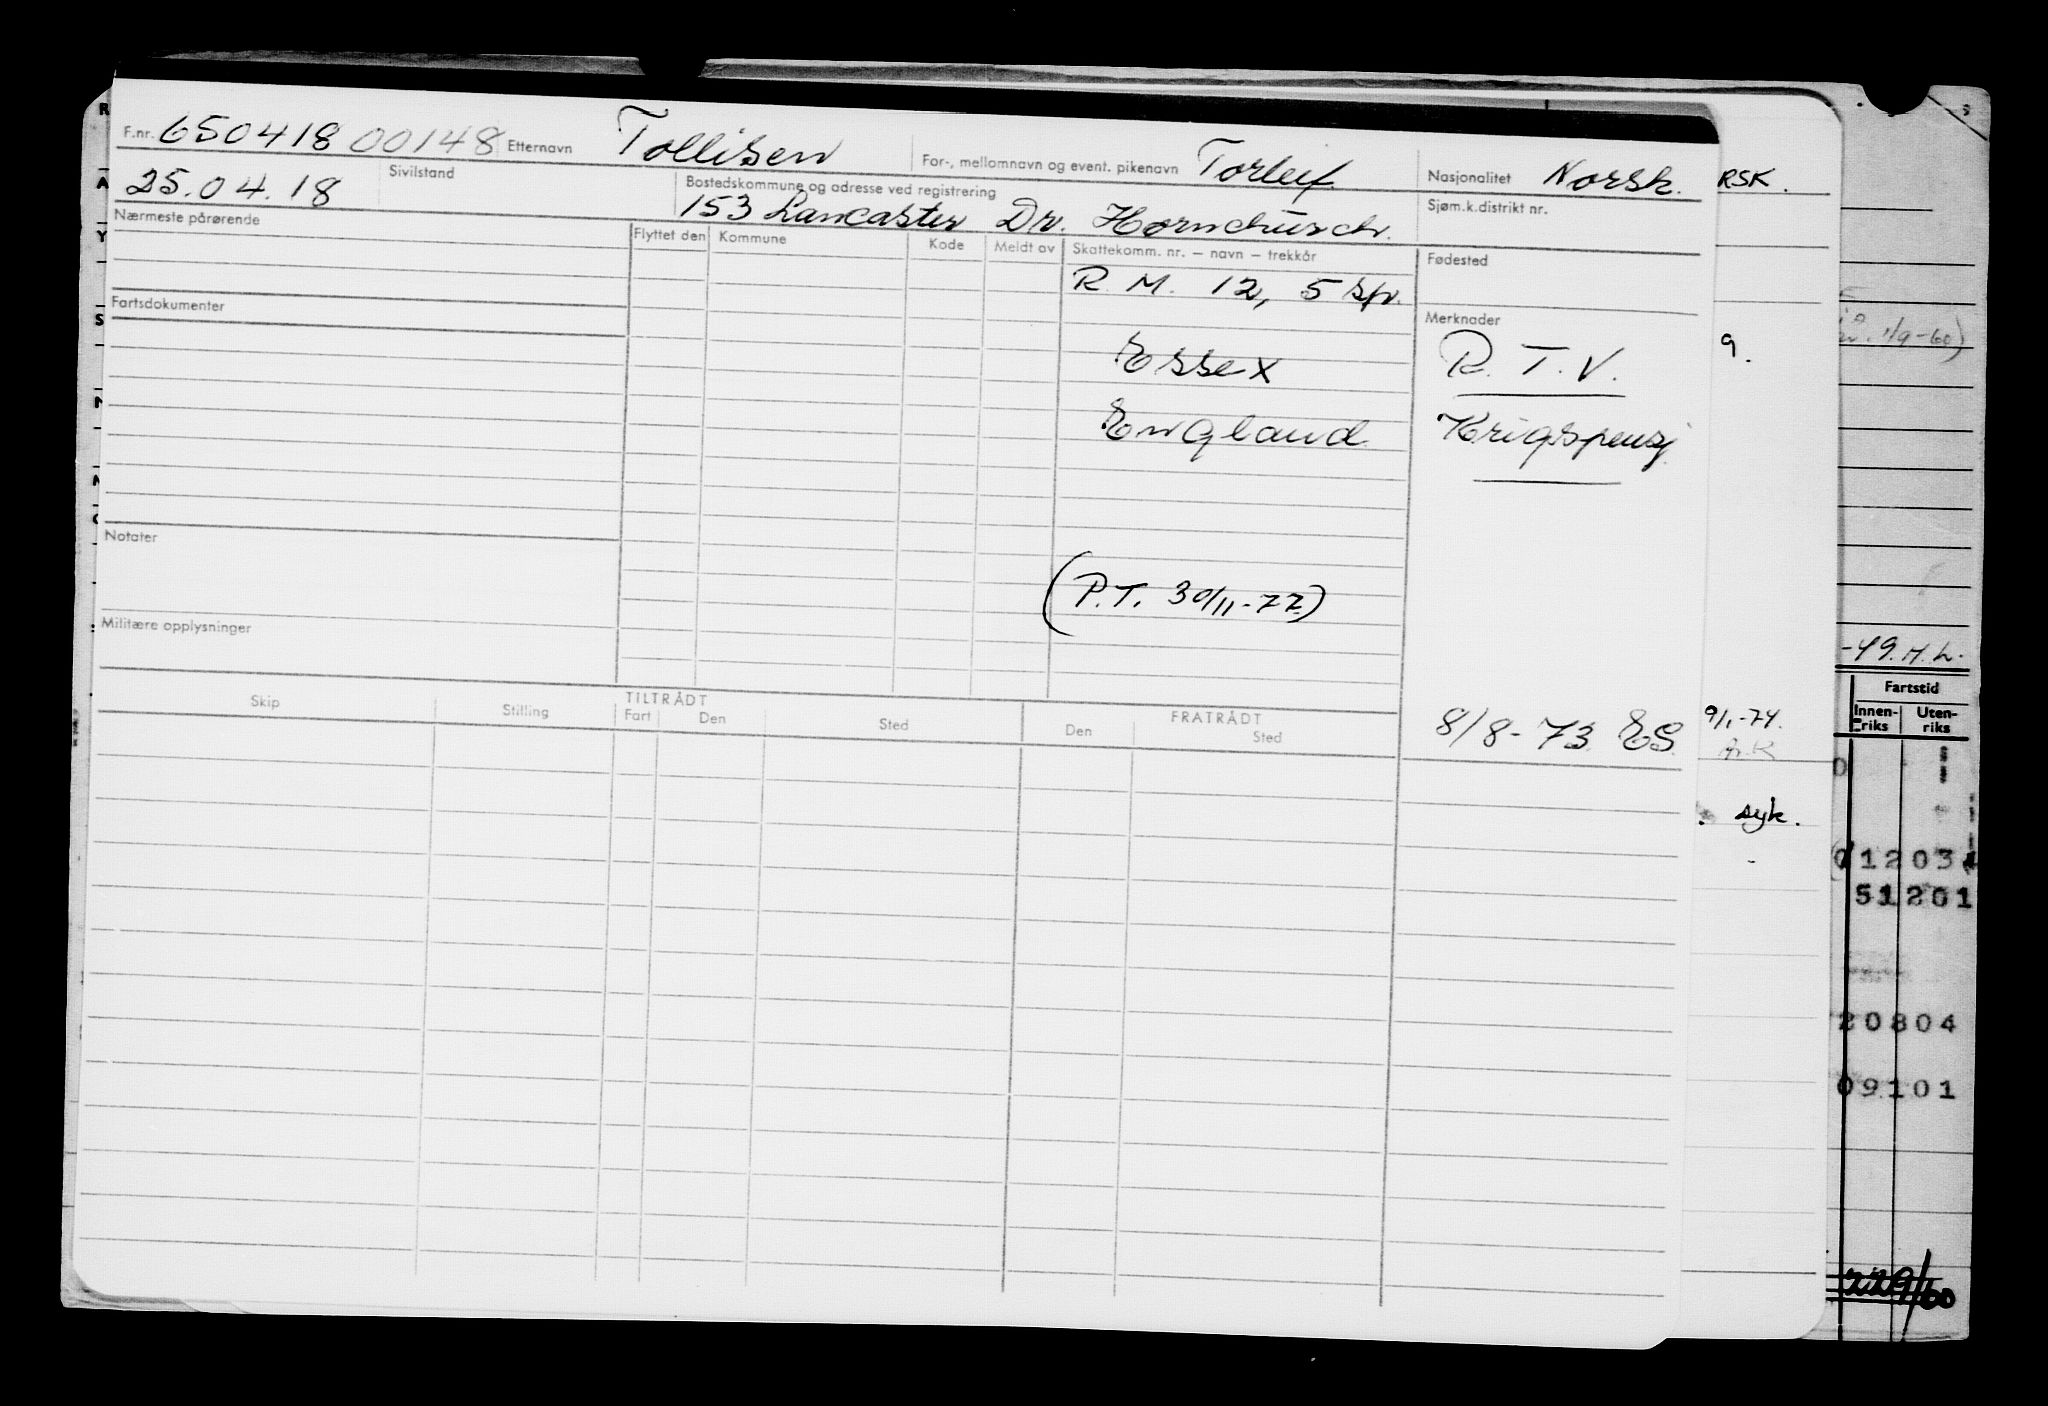 F.nr. 650418 00148 Etternavn Tollisen For-, mellomnavn og event. pikenavn Torleif Nasjonalitet Norsk. RSK.
25.04.18 Sivilstand Bostedskommune og adresse ved registrering Sjøm.k.distrikt nr.
153 Lancaster Dr. Hornchurch.
Nærmeste pårørende Flyttet den Kommune Kode Meldt av Skattekomm. nr. – navn – trekkår Fødested
R. M. 12, 5 Sp.
Fartsdokumenter Merknader
Essex R. T. V. 9.
1/9-60)
England Krigspensj.
Notater
(P.T. 30/11-77)
Militære opplysninger
-49. H. L.
Fartstid
Innen-riks Uten-riks
TILTRÅDT FRATRÅDT
Skip Stilling Fart Den Sted Den Sted
8/8-73 ES. 9/1-74.
syk.
12034
51201
20804
09101
229/60